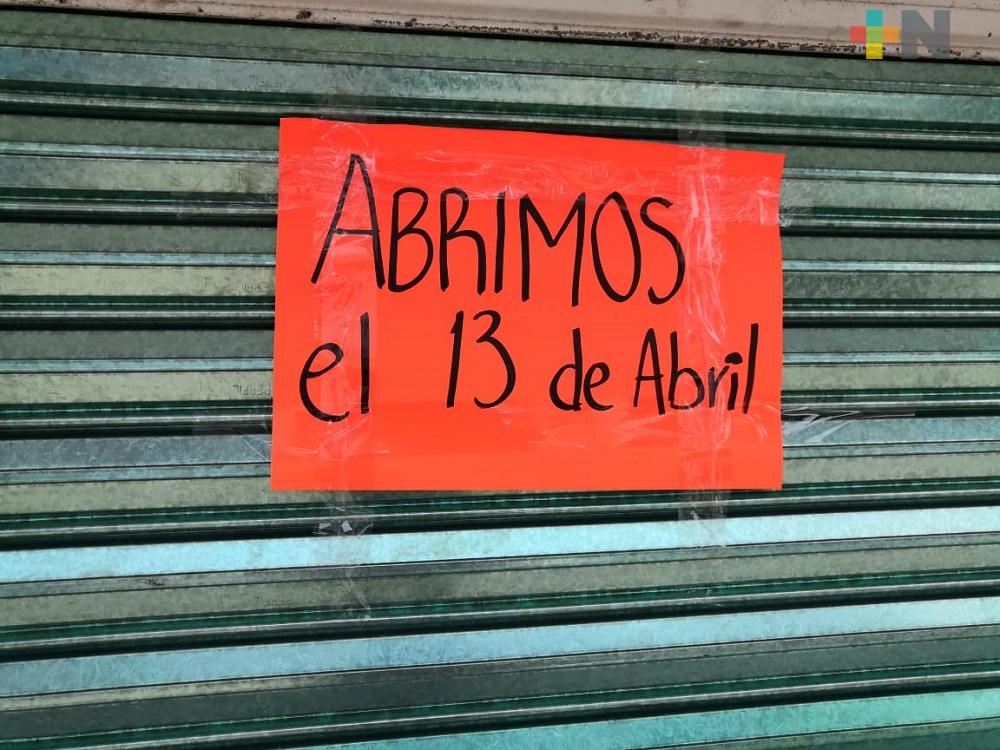 +N
ABRIMOS
el 13 de Abril